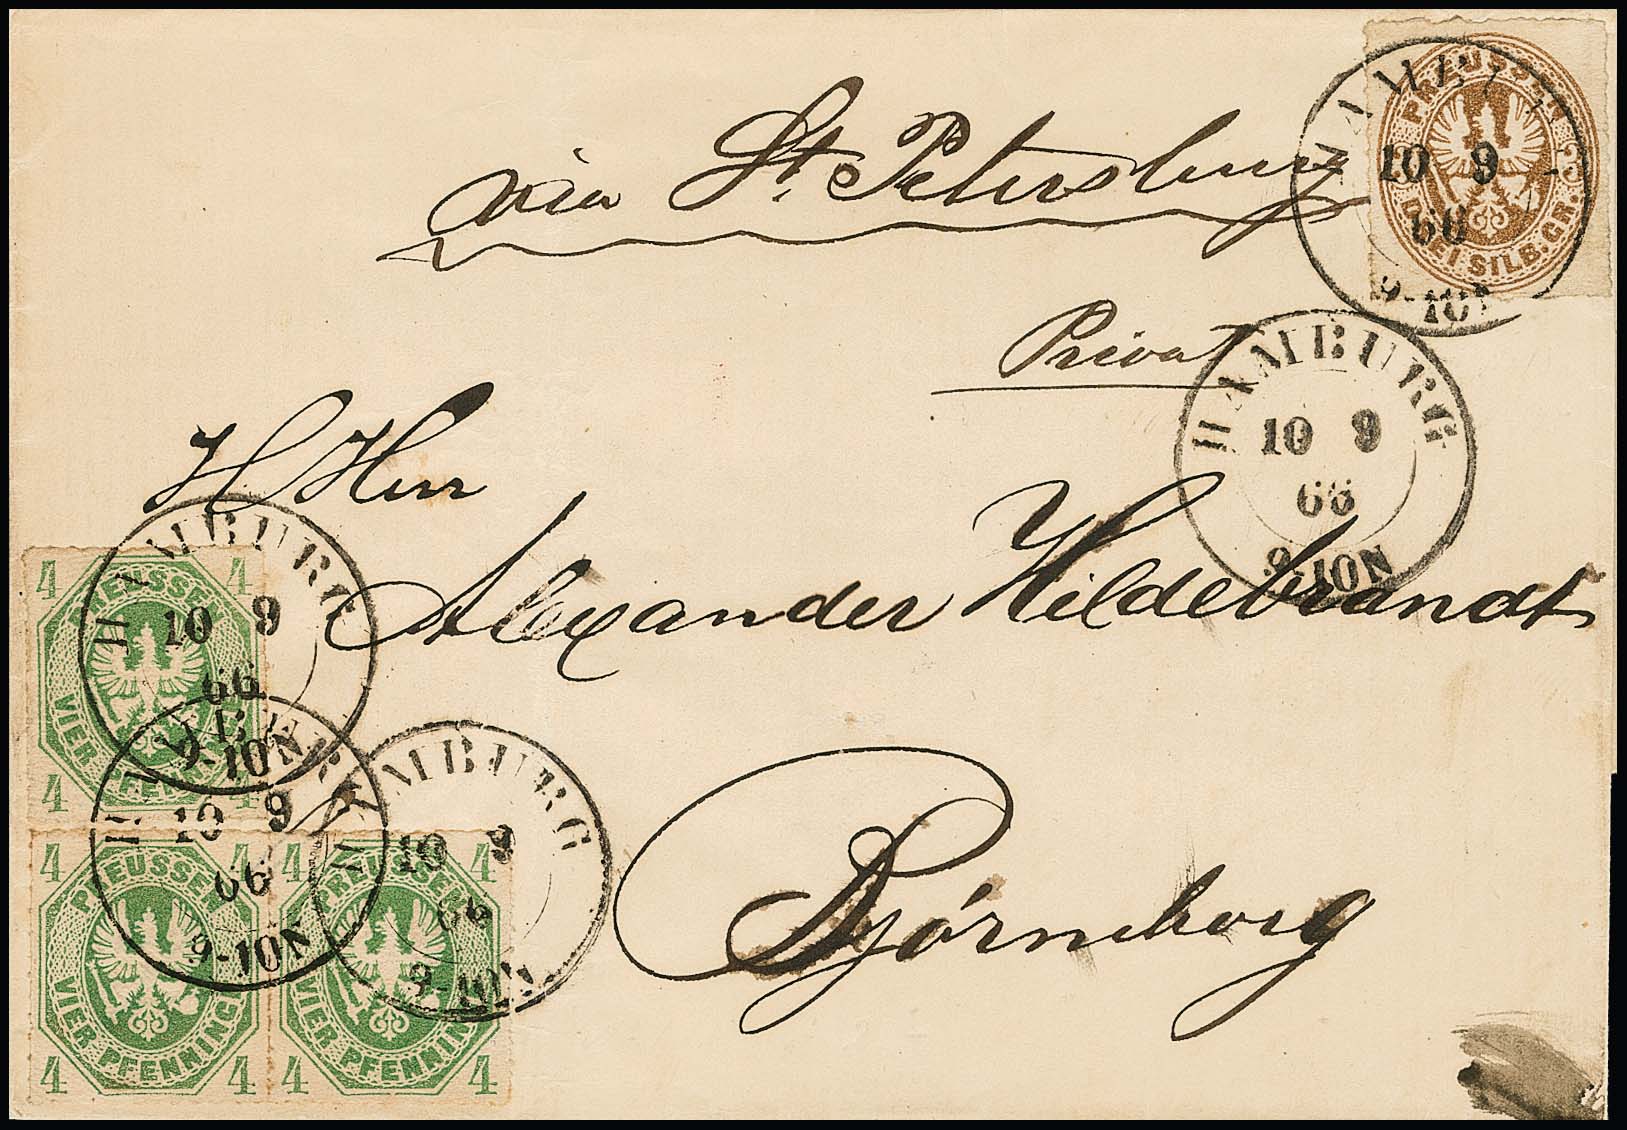 via St. Petersburg
PREUSSEN
3
DREI SILB. GR.
HAMBURG
10 9
66
9-10N
Privat
HAMBURG
10 9
66
9-10N
H Herr
Alexander Hildebrandt
Björneborg
4 4
PREUSSEN
VIER PFENNINGE
4 4
HAMBURG
10 9
66
9-10N
4 4
PREUSSEN
VIER PFENNINGE
4 4
HAMBURG
10 9
66
9-10N
4 4
PREUSSEN
VIER PFENNINGE
4 4
HAMBURG
10 9
66
9-10N